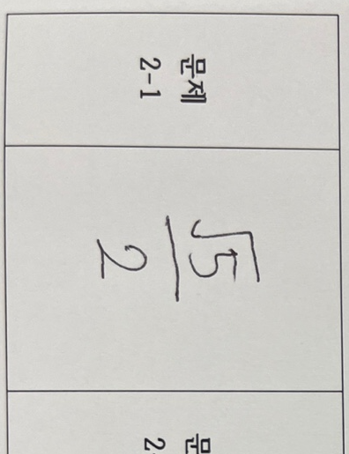 문제
2-1
√5
2
문
2